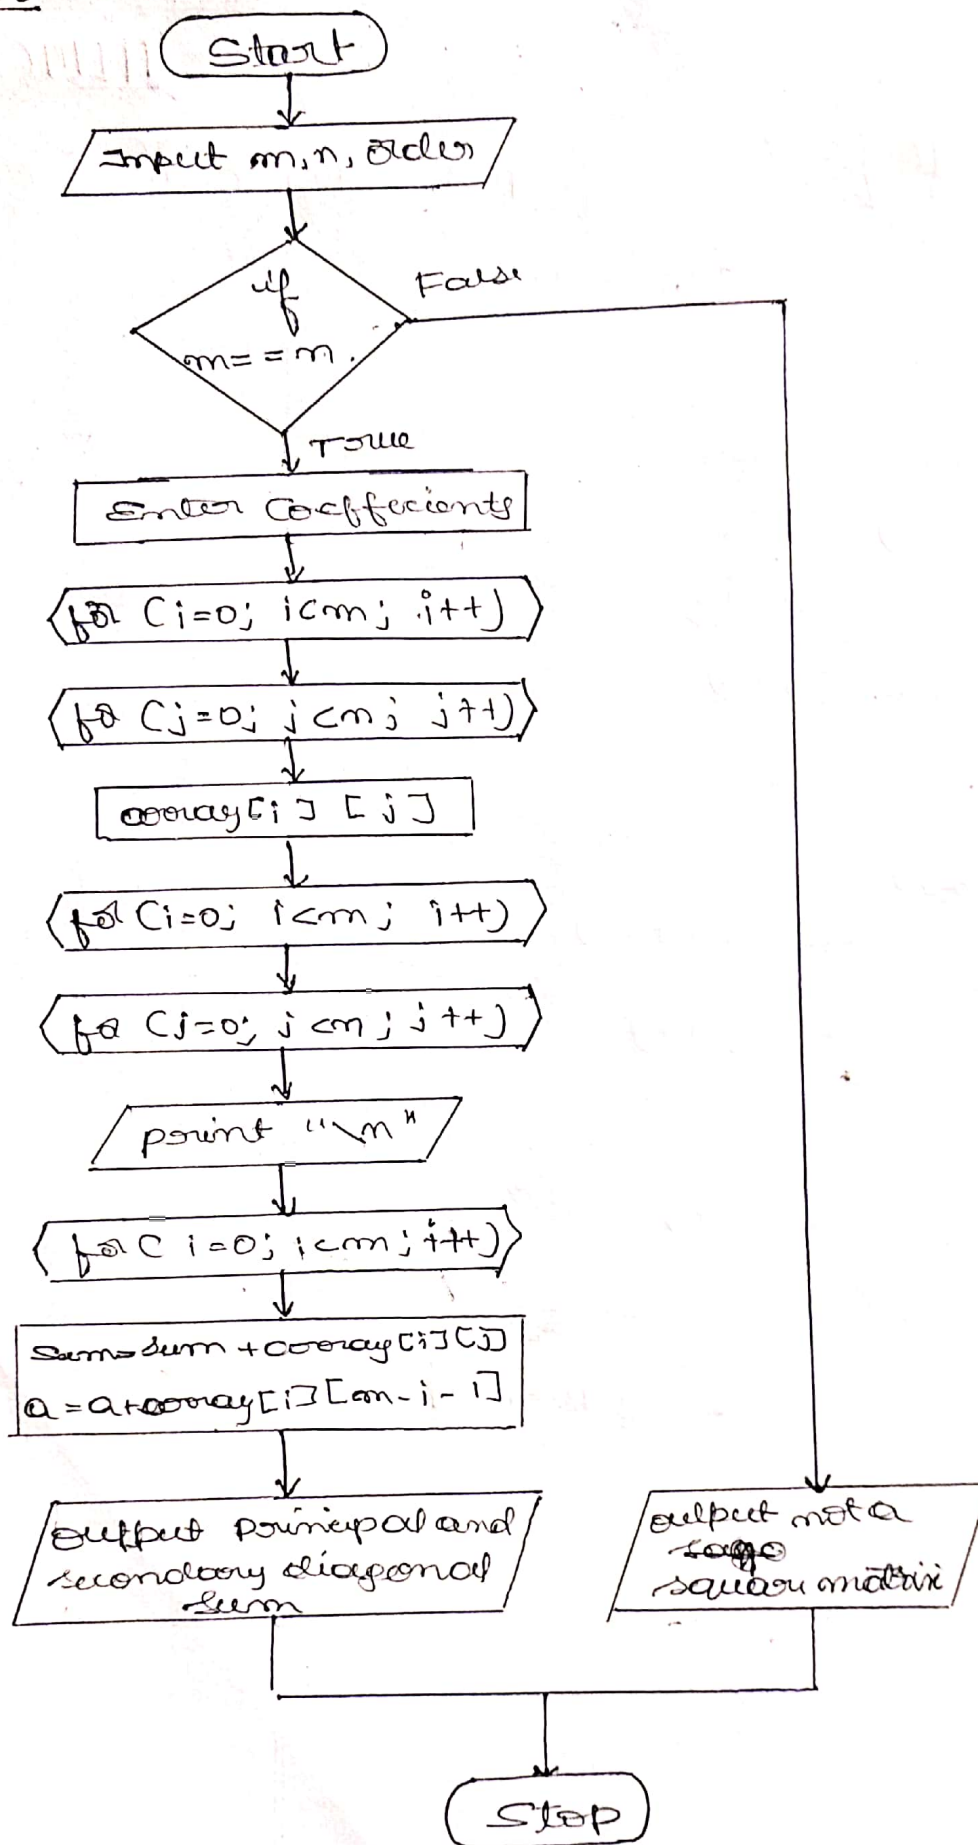 Start
Input m, n, order
if
m = = n.
False
True
Enter Coeffecients
for (i=0; i<m; i++)
for (j=0; j<n; j++)
array[i] [j]
for (i=0; i<m; i++)
for (j=0; j<n; j++)
print "\n"
for ( i=0; i<m; i++)
Sum=Sum + array[i][j]
a = a+array[i][m-i-1]
output principal and
secondary diagonal
Sum
output not a
square matrix
Stop